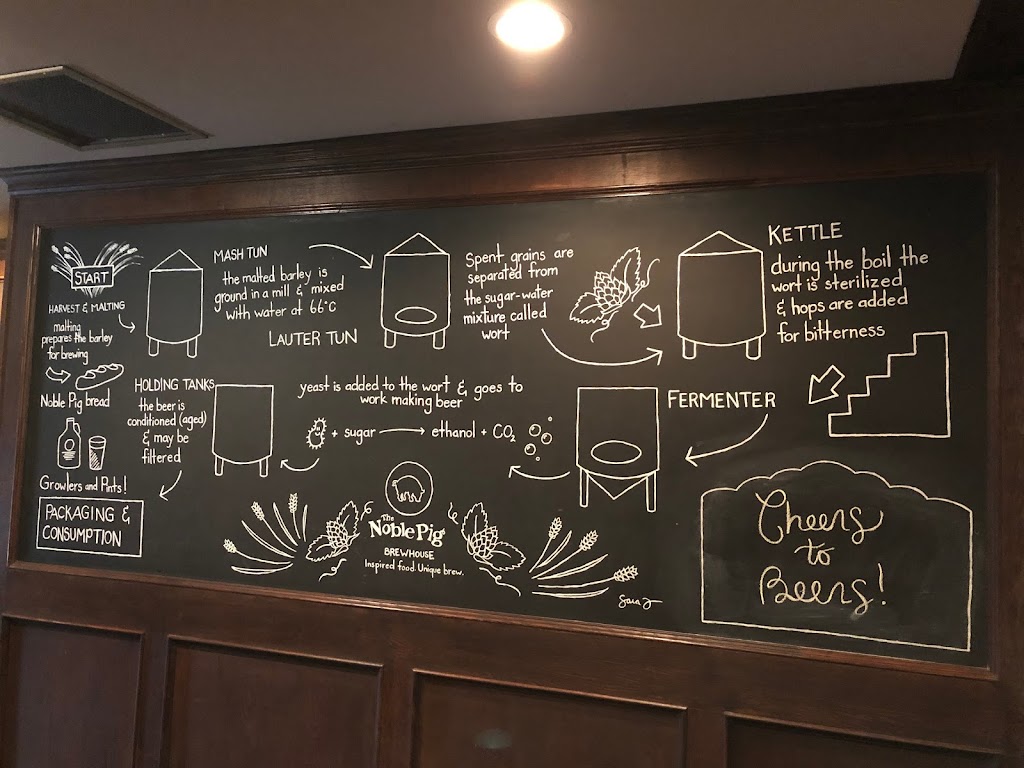 START
HARVEST & MALTING
malting
prepares the barley
for brewing
Noble Pig bread
MASH TUN
the malted barley is
ground in a mill & mixed
with water at 66°C
LAUTER TUN
Spent grains are
separated from
the sugar-water
mixture called
wort
KETTLE
during the boil the
wort is sterilized
& hops are added
for bitterness
FERMENTER
yeast is added to the wort & goes to
work making beer
+ sugar → ethanol + CO₂
HOLDING TANKS
the beer is
conditioned (aged)
& may be
filtered
Growlers and Pints!
PACKAGING &
CONSUMPTION
The
Noble Pig
BREWHOUSE
Inspired food. Unique brew.
Cheers
to
Beers!